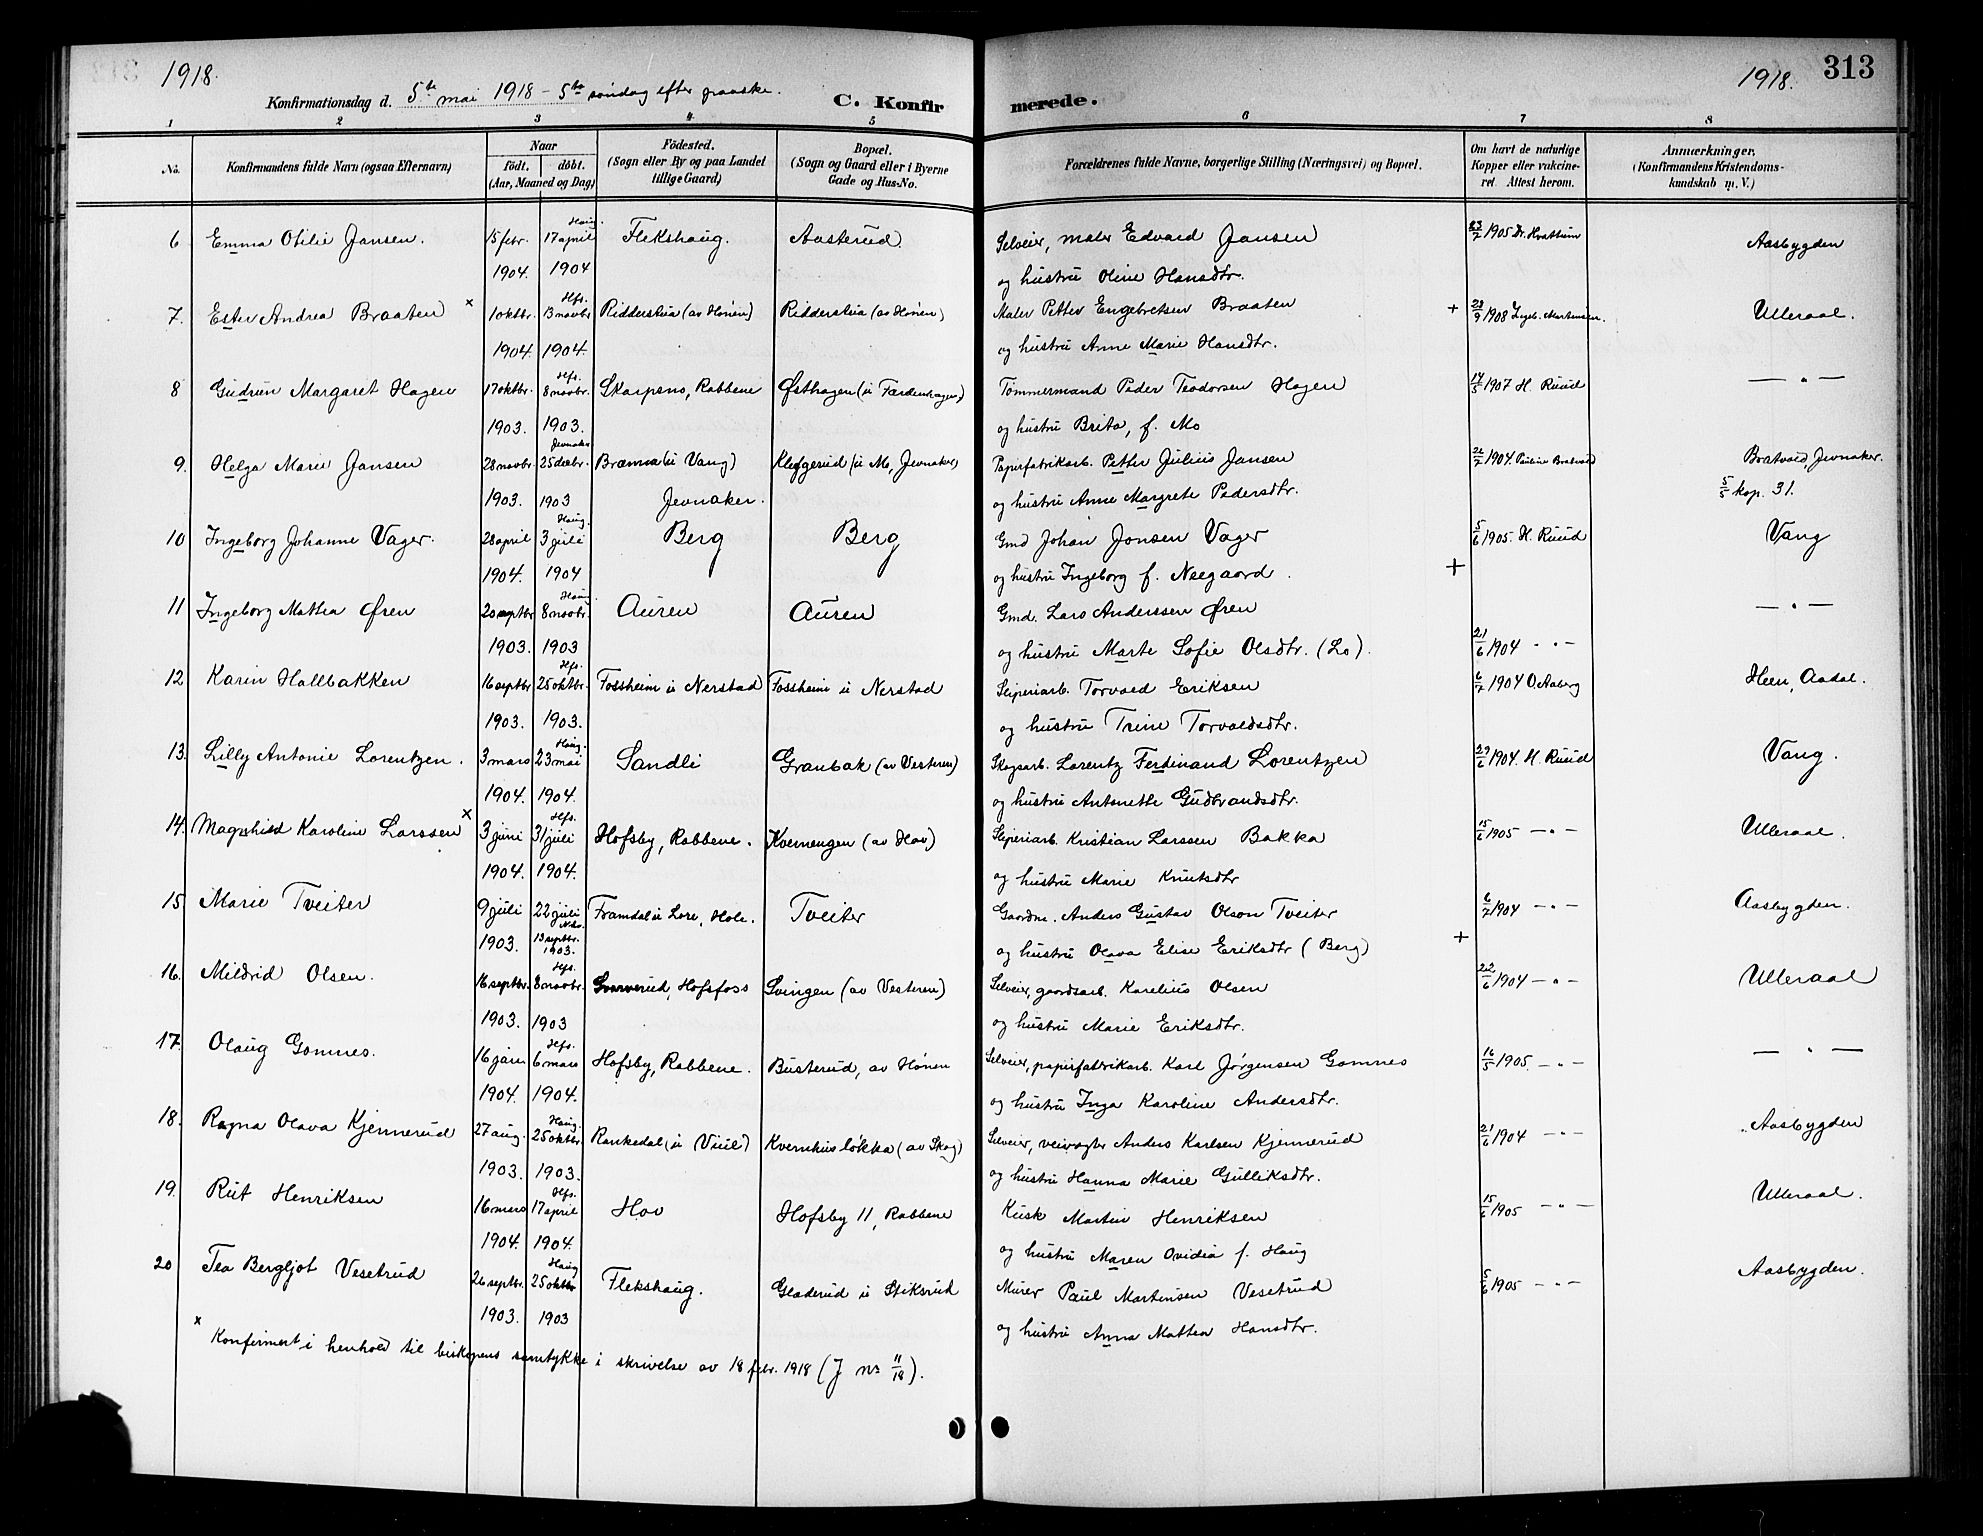 1918.
Konfirmationsdag d. 5te mai 1918 - 5te søndag efter paaske.
C. Konfirmerede.
1918. 313
1 2 3 4 5 6 7 8
No.
Konfirmandens fulde Navn (ogsaa Efternavn)
Naar
födt. döbt.
(Aar, Maaned og Dag)
Födested.
(Sogn eller By og paa Landet
tillige Gaard)
Bopæl.
(Sogn og Gaard eller i Byerne
Gade og Hus-No.
Forældrenes fulde Navne, borgerlige Stilling (Næringsvei) og Bopæl.
Om havt de naturlige
Kopper eller vakcine-
ret. Attest herom.
Anmærkninger,
(Konfirmandens Kristendoms-
kundskab m. V.)
Haug.
6 Emma Otilie Jansen. 15 febr. 17 april Flekshaug. Aasterud. Selveier, maler Edvard Jansen 23/7 1905 Dr. Hvattum Aasbygden
1904. 1904 og hustru Oline Hansdtr.
Hfs.
7. Ester Andrea Braaten x 1 oktbr. 13 novbr Ridderstua (av Hønen) Ridderstua (av Hønen) Maler Petter Engebretsen Braaten + 23/9 1908 Ingeb. Martinsen. Ulleraal.
1904. 1904. og hustru Anne Marie Hansdtr.
Hfs.
8 Gudrun Margaret Hagen 17 oktbr. 8 novbr. Skarpens, Rabbene Østhagen (u Færdenhagen) Tømmermand Peder Teodorsen Hagen 14/5 1907 H. Ruud — " —
1903. 1903. og hustru Brita, f. Mo
Jevnaker
9. Helga Marie Jansen 28 novbr. 25 decbr. Brænna (u Vang) Kleggerud (u Mo, Jevnaker) Papirfabrikarb. Petter Julius Jansen 22/7 1904. Pauline Bratvold Bratvold, Jevnaker.
1903. 1903 Jevnaker. og hustru Anne Margrete Pedersdtr. 5/5 kap. 31.
Haug.
10 Ingeborg Johanne Vager. 28 april 3 juli Berg Berg Gmd Johan Jonsen Vager 5/6 1905. H. Ruud Vang
1904. 1904 og hustru Ingeborg f. Neegaard. +
Haug.
11 Ingeborg Mathea Øren 20 septbr 8 novbr. Auren Auren Gmd. Lars Anderssen Øren — " —
1903. 1903 og hustru Marte Sofie Olsdtr. (Lo). 21/6 1904 - " -
Hfs.
12 Karin Hallbakken 16 septbr 25 oktbr. Fossheim u Nerstad Fossheim u Nerstad Sliperiarb. Torvald Eriksen 6/7 1904 O. Aaberg Heen, Aadal.
1903. 1903. og hustru Trine Torvaldsdtr.
Haug.
13. Lilly Antonie Lorentzen. 3 mars 23 mai Sandli Granbak (av Vesteren) Skogsarb. Lorentz Ferdinand Lorentzen 27/6 1904. H. Ruud Vang.
1904. 1904. og hustru Antonette Gudbrandsdtr.
Hfs.
14. Magnhild Karoline Larssen x 3 juni 31 juli Hofsby, Rabbene. Kvernengen (av Hov) Sliperiarb. Kristian Larssen Bakka 15/6 1905 — " — Ulleraal.
1904. 1904. og hustru Marie Knutsdtr
15 Marie Tveiter 9 juli 22 juli Framdal u Lore, Hole. Tveiter Gaardm. Anders Gustav Olson Tveiter 6/7 1904 — " — Aasbygden.
1903. 13 septbr. 1903. og hustru Olava Elise Eriksdtr (Berg) +
Hfs.
16. Mildrid Olsen. 16 septbr. 8 novbr. Hofsfoss Svingen (av Vesteren) Selveier, gaardsarb. Karelius Olsen 22/6 1904 — " — Ulleraal
1903. 1903 og hustru Marie Eriksdtr.
Hfs.
17. Olaug Gomnes. 16 jan 6 mars Hofsby, Rabbene. Busterud, av Hønen Selveier, papirfabrikarb. Karl Jørgensen Gomnes 16/5 1905. — " — — " —
1904. 1904. og hustru Inga Karoline Andersdtr.
Haug.
18. Ragna Olava Kjennerud 27 aug. 25 oktbr. Rankedal (u Viul) Kvernhusløkka (av Skog) Selveier, veivogter Anders Karlsen Kjennerud 21/6 1904 — " — Aasbygden
1903. 1903. og hustru Hanna Marie Gulliksdtr.
Hfs.
19. Rut Henriksen 16 mars 17 april Hov Hofsby 11, Rabbene Kusk Martin Henriksen 15/6 1905 — " — Ulleraal.
1904. 1904. og hustru Maren Ovidia f. Haug
Haug
20 Tea Bergljot Vesetrud 26 septbr. 25 oktbr Flekshaug. Gladerud u Stiksrud Murer Paul Martinsen Vesetrud 5/6 1905 — " — Aasbygden.
1903. 1903 og hustru Anna Mathea Hansdtr.
x Konfirmert i henhold til biskopens samtykke i skrivelse av 18 febr. 1918 (J no 11/18).